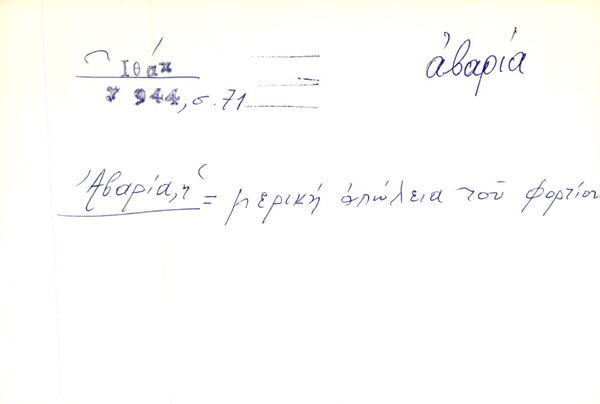 Ἰθάκ
ἀβαρία
7 944, σ. 71
Ἀβαρία, ἡ = μερική ἀπώλεια τοῦ φορτίου